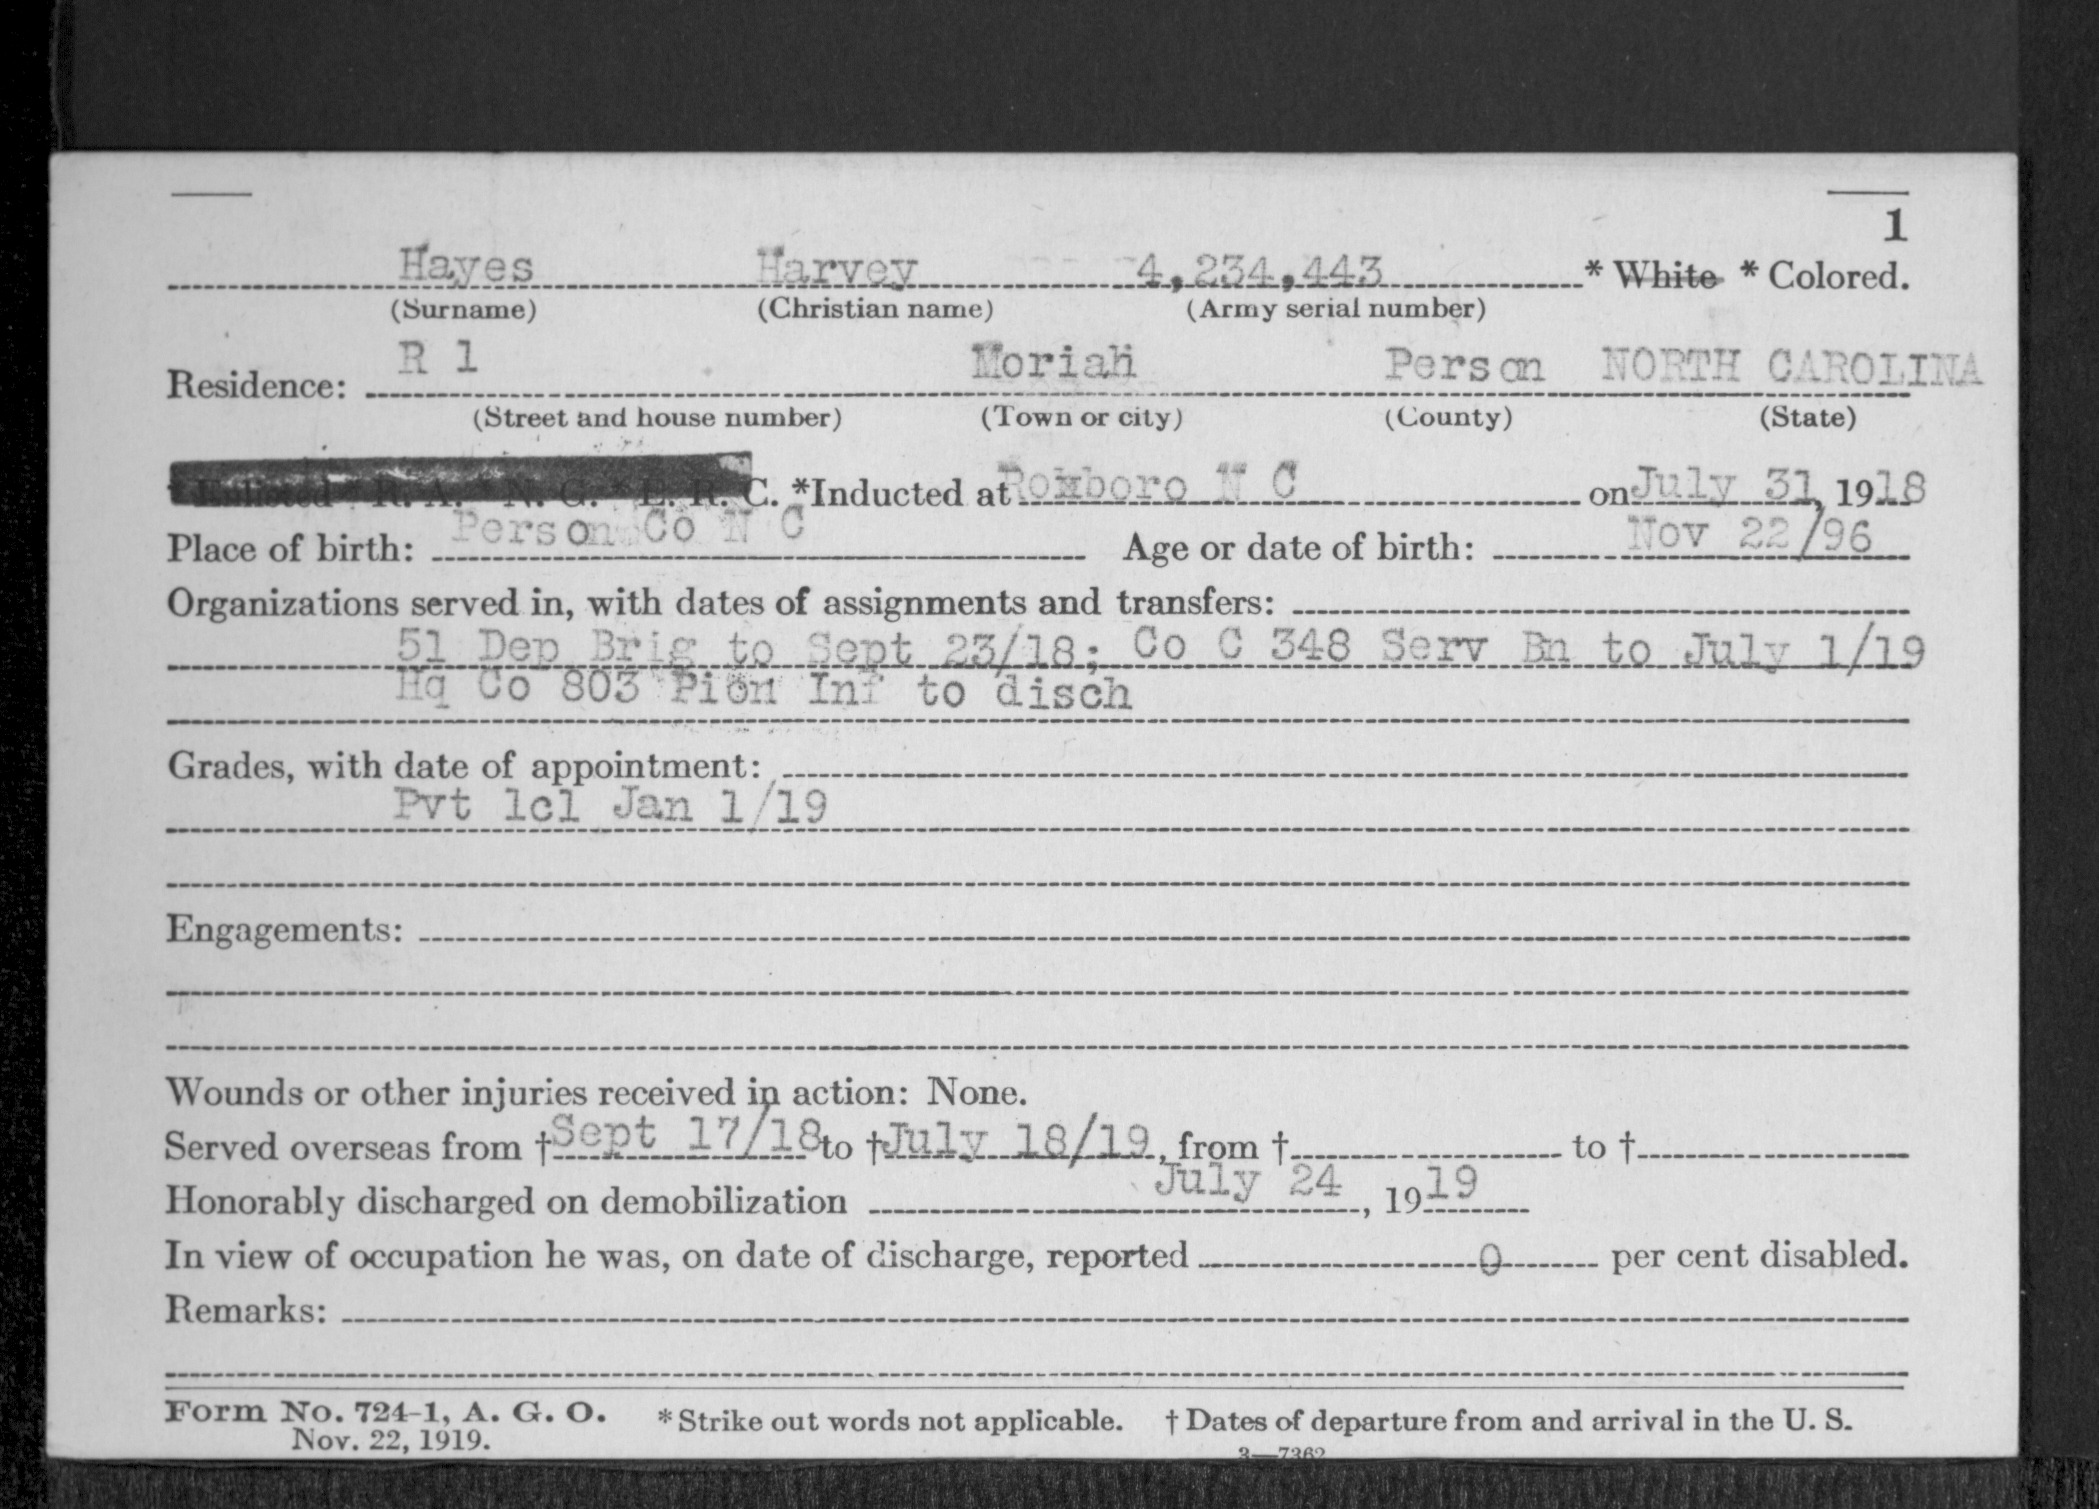 1
Hayes Harvey 4,234,443 * White * Colored.
(Surname) (Christian name) (Army serial number)
R 1 Moriah Person NORTH CAROLINA
Residence:
(Street and house number) (Town or city) (County) (State)
* Enlisted * R. A. * N. G. * E. R. C. *Inducted at Roxboro N C on July 31, 1918
Place of birth: Person Co N C Age or date of birth: Nov 22/96
Organizations served in, with dates of assignments and transfers:
51 Dep Brig to Sept 23/18; Co C 348 Serv Bn to July 1/19
Hq Co 803 Pion Inf to disch
Grades, with date of appointment:
Pvt 1cl Jan 1/19
Engagements:
Wounds or other injuries received in action: None.
Served overseas from † Sept 17/18 to † July 18/19, from † to †
Honorably discharged on demobilization July 24, 1919
In view of occupation he was, on date of discharge, reported 0 per cent disabled.
Remarks:
Form No. 724-1, A. G. O. * Strike out words not applicable. † Dates of departure from and arrival in the U. S.
Nov. 22, 1919. 3—7362